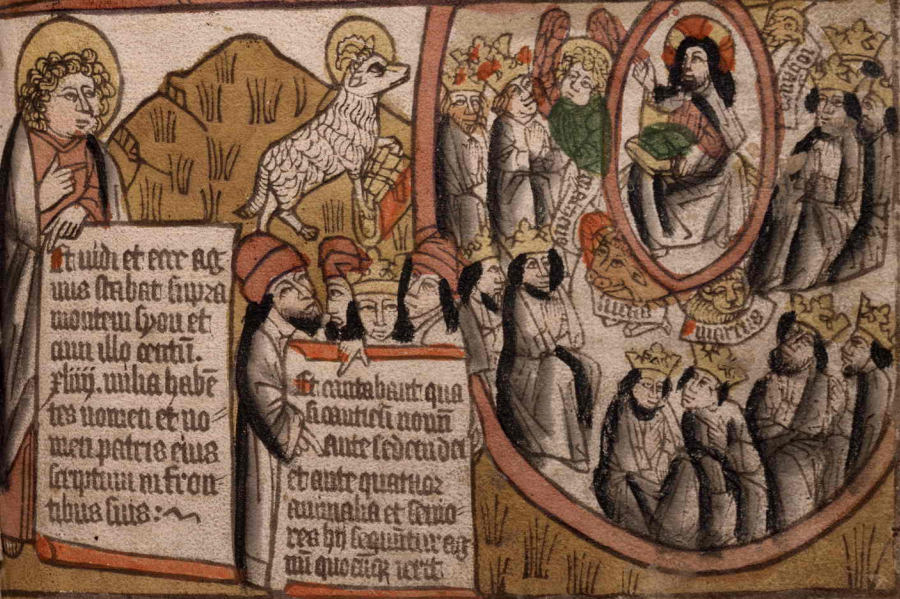 Et uidi et ecce ag
nus stabat supra
montem syon et
cum illo centū.
xliiij. milia habē
tes nomen et no
men patris eius
scriptum in fron
tibus suis:
Et cantabant qua
si canticū nouū
Ante sedem dei
et ante quatuor
animalia et senio
res hij sequntur ag
nū quocūq ierit
lucas
marcus